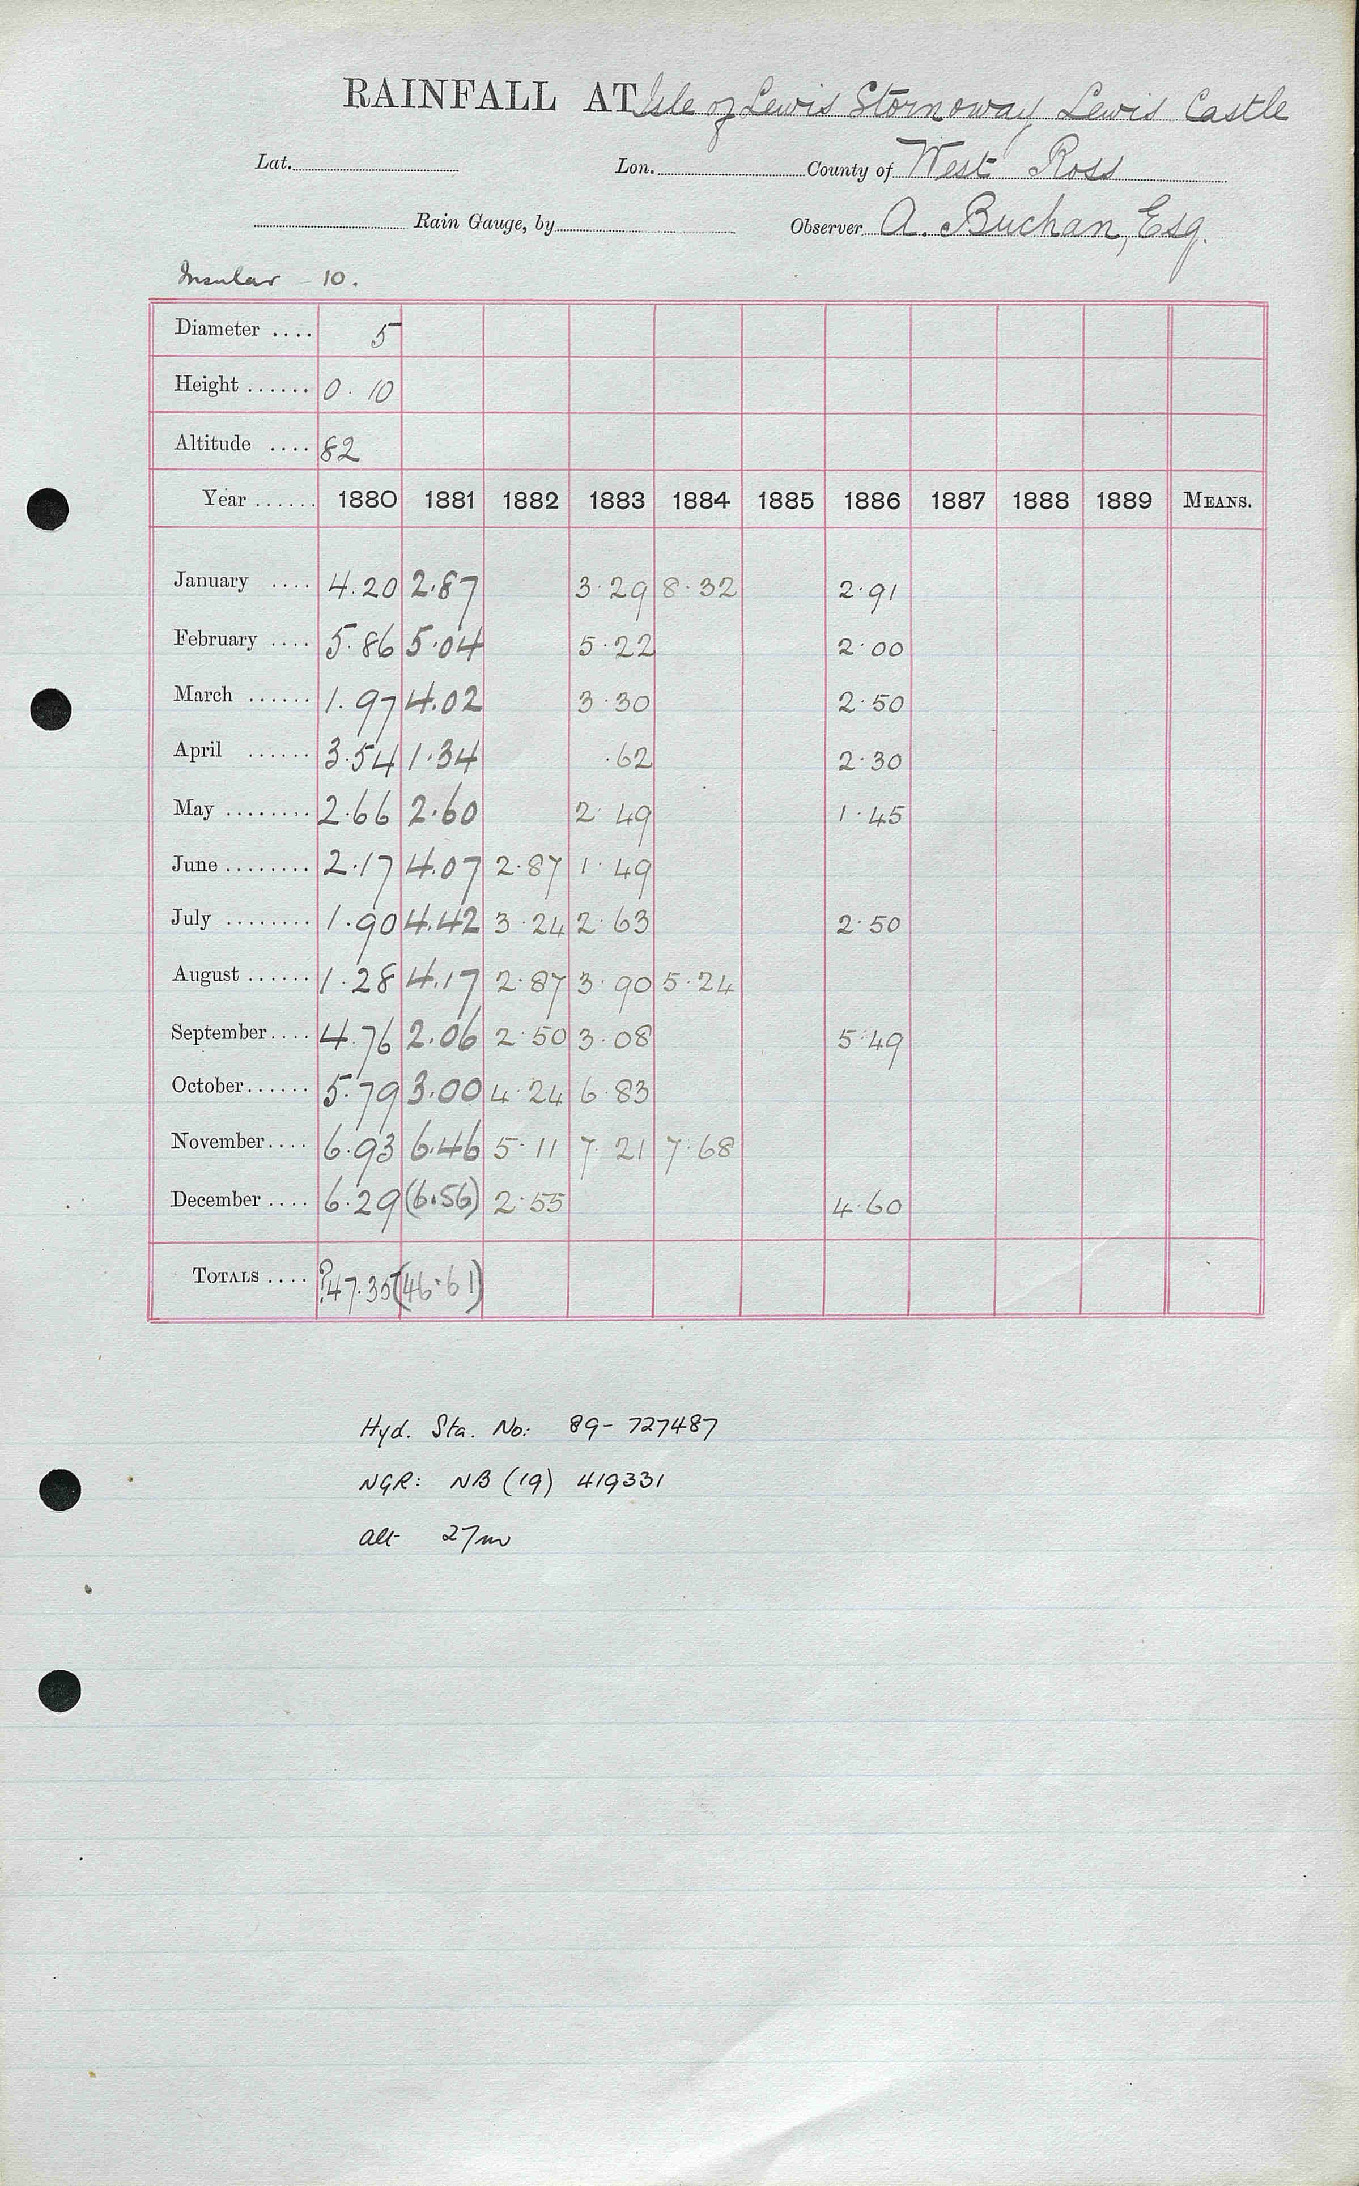 RAINFALL AT Isle of Lewis Stornoway, Lewis Castle
Lat. Lon. County of West Ross
Rain Gauge, by Observer A. Buchan, Esq.
Insular - 10.
Diameter .... 5
Height ...... 0. 10
Altitude .... 82
Year ...... 1880 1881 1882 1883 1884 1885 1886 1887 1888 1889 MEANS.
January .... 4.20 2.87 3.29 8.32 2.91
February .... 5.86 5.04 5.22 2.00
March ...... 1.97 4.02 3.30 2.50
April ...... 3.54 1.34 .62 2.30
May ........ 2.66 2.60 2.49 1.45
June ........ 2.17 4.07 2.87 1.49
July ........ 1.90 4.42 3.24 2.63 2.50
August ...... 1.28 4.17 2.87 3.90 5.24
September .... 4.76 2.06 2.50 3.08 5.49
October ...... 5.79 3.00 4.24 6.83
November .... 6.93 6.46 5.11 7.21 7.68
December .... 6.29 (6.56) 2.55 4.60
TOTALS .... ?47.35 (46.61)
Hyd. Sta. No: 89- 727487
NGR: NB (19) 419331
Alt 27m